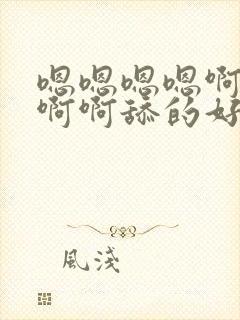 嗯嗯嗯嗯啊
啊啊舔的好
風淺